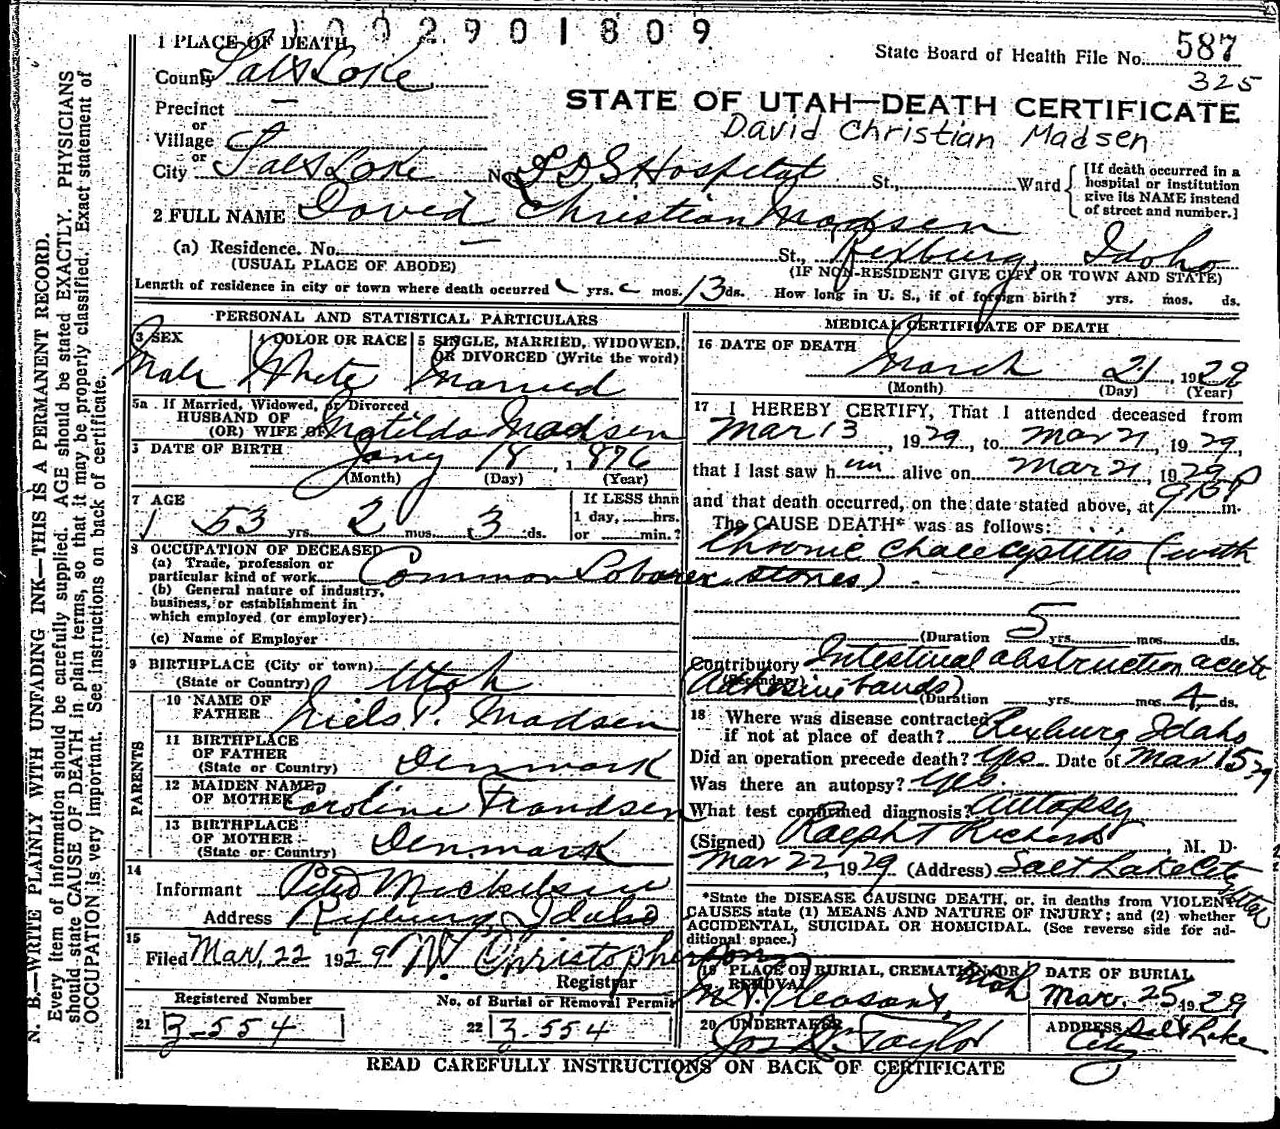 1002901809
State Board of Health File No. 587
325
STATE OF UTAH—DEATH CERTIFICATE
David Christian Madsen
1 PLACE OF DEATH
County Salt Lake
Precinct —
or
Village
or
City Salt Lake No. L D S Hospital St., Ward
[If death occurred in a hospital or institution give its NAME instead of street and number.]
2 FULL NAME David Christian Madsen
(a) Residence. No. — St., Rexburg, Idaho
(USUAL PLACE OF ABODE) (IF NON-RESIDENT GIVE CITY OR TOWN AND STATE)
Length of residence in city or town where death occurred yrs. mos. 13 ds. How long in U. S., if of foreign birth? yrs. mos. ds.
PERSONAL AND STATISTICAL PARTICULARS
3 SEX 4 COLOR OR RACE 5 SINGLE, MARRIED, WIDOWED,
OR DIVORCED (Write the word)
Male White Married
5a If Married, Widowed, or Divorced
HUSBAND OF
(OR) WIFE OF Matilda Madsen
DATE OF BIRTH Jany 18, 1876
(Month) (Day) (Year)
7 AGE If LESS than
53 yrs. 2 mos. 3 ds. 1 day, hrs.
or min.?
8 OCCUPATION OF DECEASED
(a) Trade, profession or
particular kind of work Common Laborer
(b) General nature of industry,
business, or establishment in
which employed (or employer)
(c) Name of Employer
9 BIRTHPLACE (City or town)
(State or Country) Utah
PARENTS
10 NAME OF
FATHER Niels P. Madsen
11 BIRTHPLACE
OF FATHER
(State or Country) Denmark
12 MAIDEN NAME
OF MOTHER Caroline Frandsen
13 BIRTHPLACE
OF MOTHER
(State or Country) Denmark
14
Informant Peter Mickelsen
Address Rexburg, Idaho
15
Filed Mar, 22 1929 W. Christopherson
Registrar
Registered Number No. of Burial or Removal Permit
21 3-554 22 3-554
MEDICAL CERTIFICATE OF DEATH
16 DATE OF DEATH
March 21, 1929
(Month) (Day) (Year)
17 I HEREBY CERTIFY, That I attended deceased from
Mar 13, 1929, to Mar 21, 1929,
that I last saw him alive on Mar 21, 1929
and that death occurred, on the date stated above, at m.
The CAUSE DEATH* was as follows:
Chronic cholecystitis (with
stones)
(Duration 5 yrs. mos. ds.
Contributory Intestinal obstruction acute
(Secondary)
Adhesive bands) (Duration yrs. mos. 4 ds.
18 Where was disease contracted
if not at place of death? Rexburg Idaho
Did an operation precede death? Yes Date of Mar 15 29
Was there an autopsy? Yes
What test confirmed diagnosis? Autopsy
(Signed) Ralph T Richards, M. D.
Mar 22, 1929 (Address) Salt Lake City
Utah
*State the DISEASE CAUSING DEATH, or, in deaths from VIOLENT
CAUSES state (1) MEANS AND NATURE OF INJURY; and (2) whether
ACCIDENTAL, SUICIDAL OR HOMICIDAL. (See reverse side for ad-
ditional space.)
19 PLACE OF BURIAL, CREMATION OR
REMOVAL
Mt. Pleasant, Utah
DATE OF BURIAL
Mar. 25, 1929
20 UNDERTAKER
Jos. Wm. Taylor
ADDRESS Salt Lake
City
READ CAREFULLY INSTRUCTIONS ON BACK OF CERTIFICATE
N. B.—WRITE PLAINLY WITH UNFADING INK—THIS IS A PERMANENT RECORD.
Every item of information should be carefully supplied. AGE should be stated EXACTLY. PHYSICIANS
should state CAUSE OF DEATH in plain terms, so that it may be properly classified. Exact statement of
OCCUPATION is very important. See instructions on back of certificate.